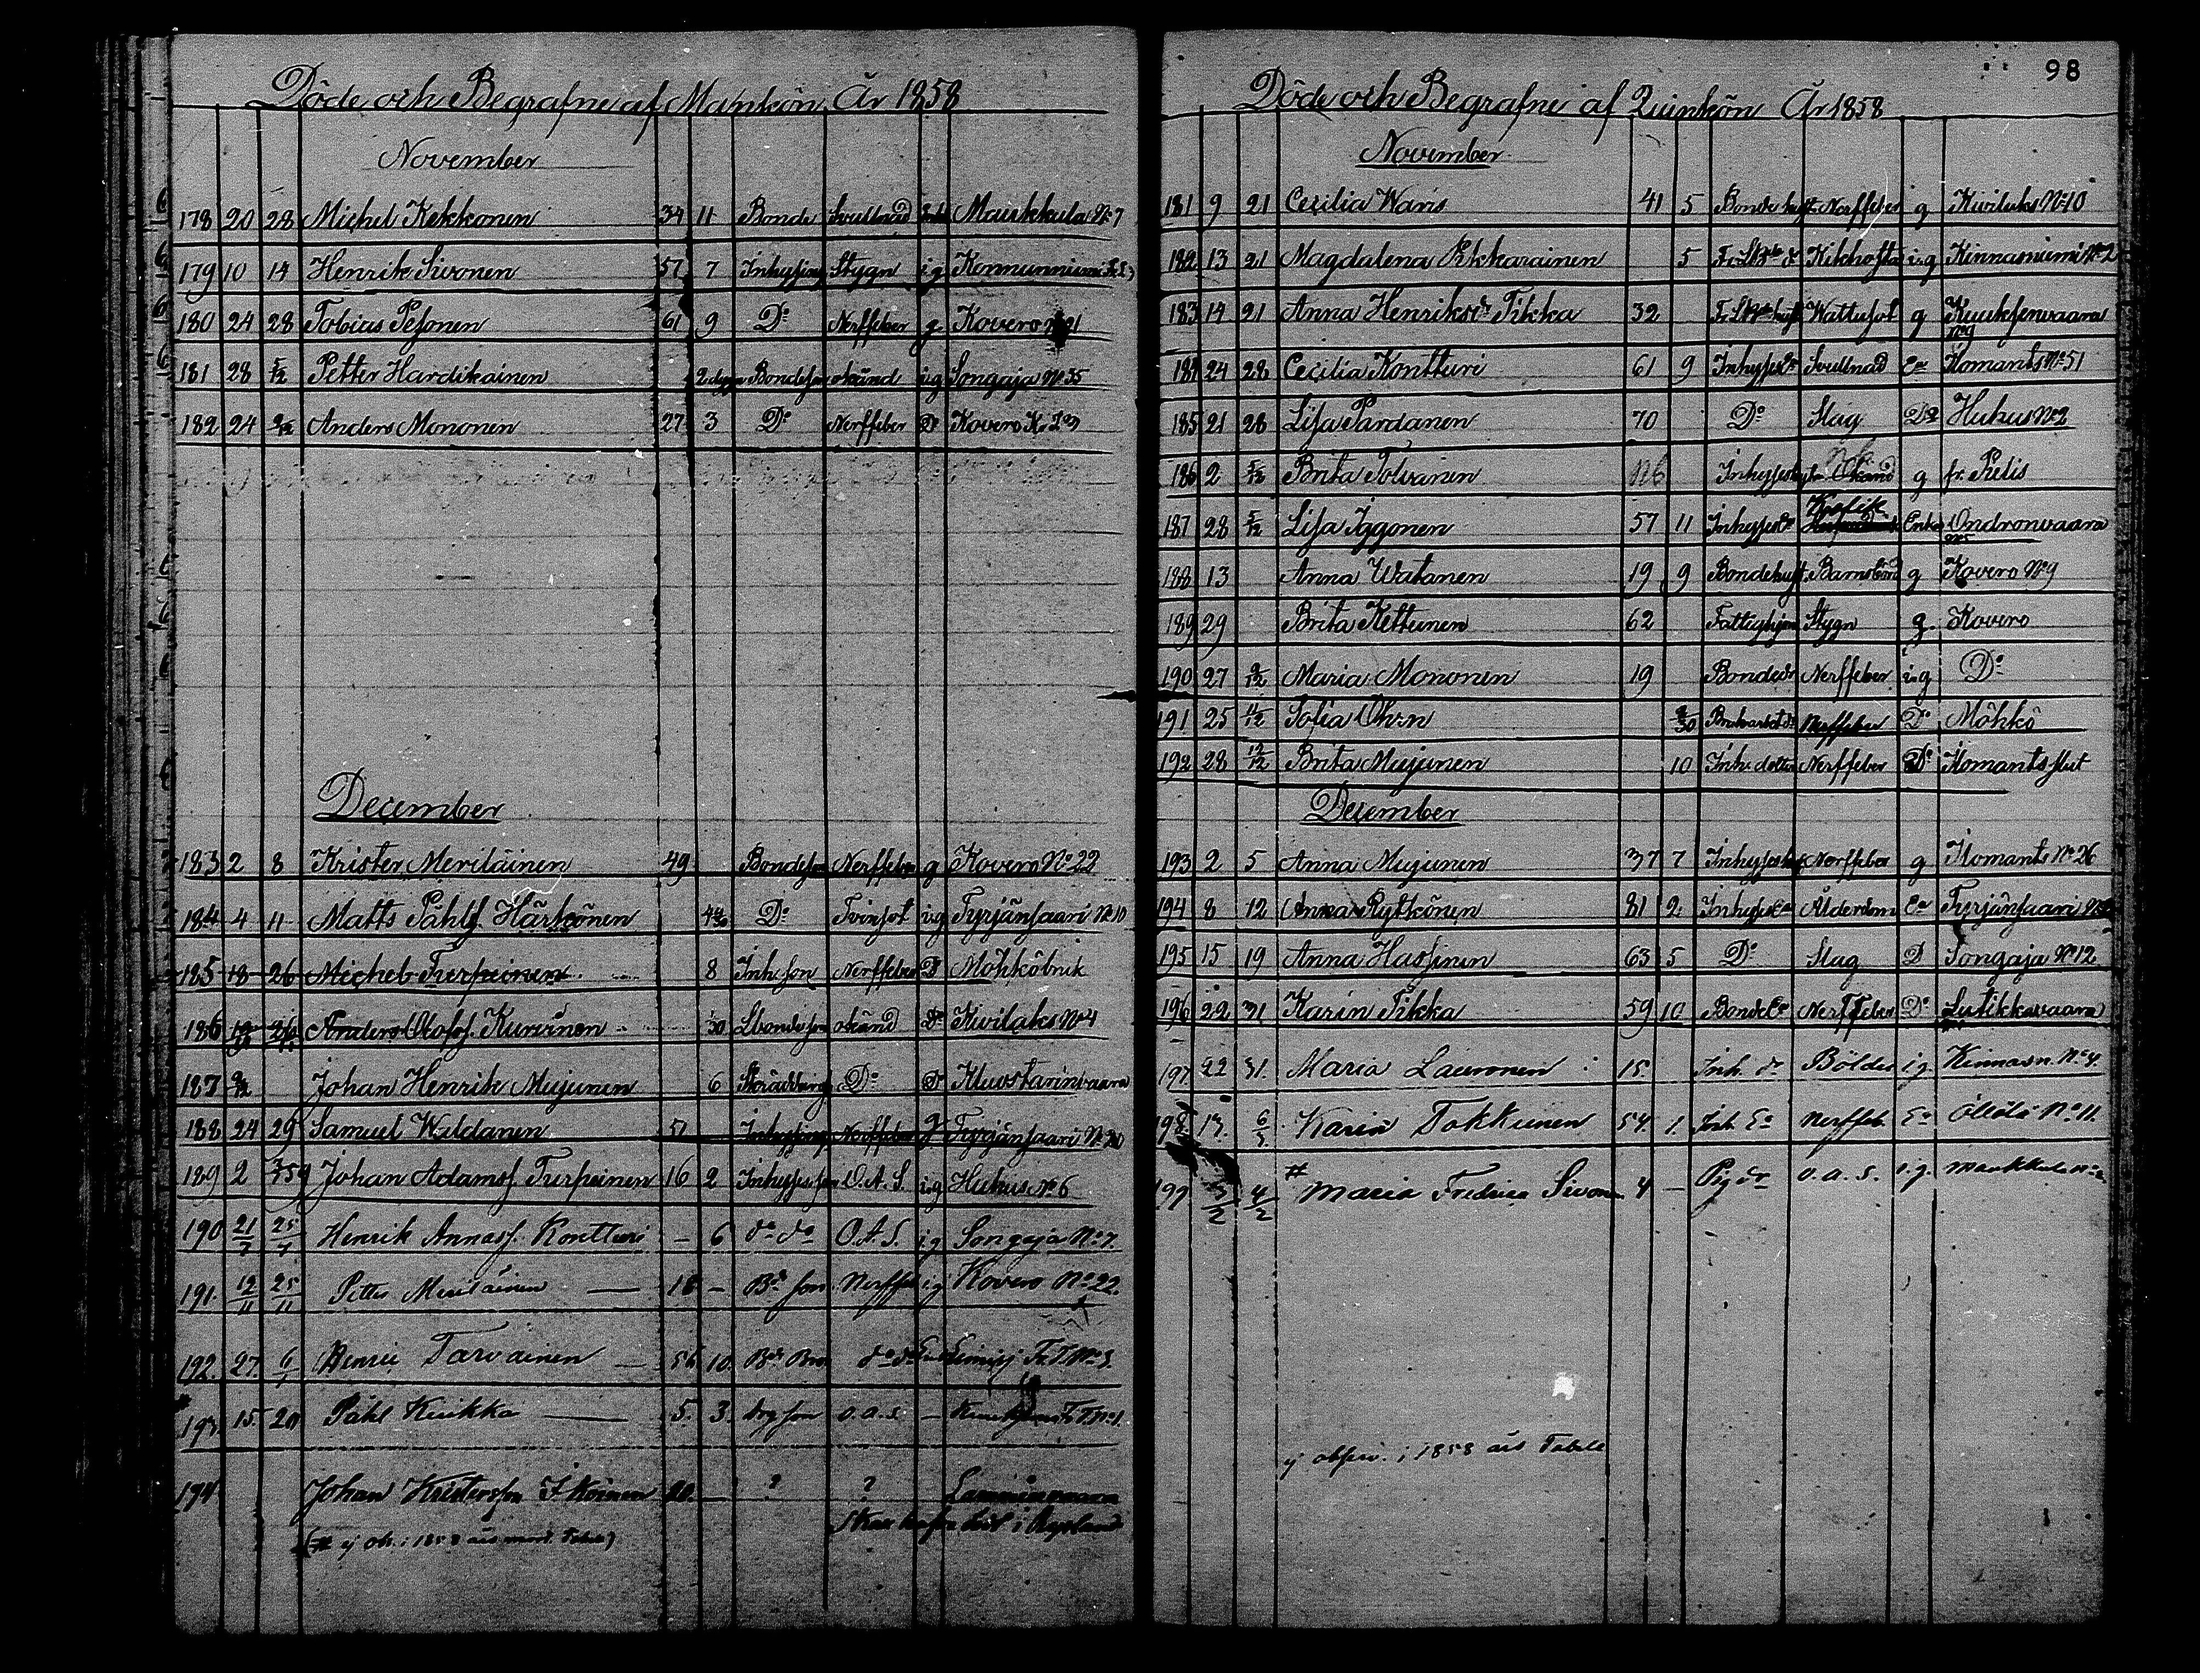 Döde och Begrafne af Mankön År 1858
November
178 20 28 Michel Kekkonen 34 11 Bonde Svullnad Maukkula No 7
179 10 14 Henrik Sivonen 57 7 Inhysing Stygn ig
180 24 28 Tobias Pesonen 61 9 Do Nerffeber g Kovero
181 28 5/12 Petter Hardikainen 2 dygn Bondeson okänd ig Songaja No 35
182 24 Anders Mononen 27 3 Do Nerffeber Do Kovero
December
183 2 8 Krister Meriläinen 49 Bondeson Nerffeber g Kovero No 22
184 4 11 Matts Påhlss. Härkönen Do Tvinsot ig Tyrjänsaari No 10
185 18 26 Michel Turpeinen 8 Inh. son Nerffeber Do Möhköbruk
186 26 Anders Olofss. Kurvinen okänd Do Kivilaks No 4
187 Johan Henrik Mujunen 6 Do Do Kuostarinvaara
188 24 29 Samuel Waldanen 51 Inhysing Nerffeber g Tyrjänsaari
189 2 Johan Adamss Turpeinen 16 2 Inhyses son O.A.S. ig Huhus No 6
190 21/7 25/7 Henrik Annass. Kontturi – 6 do do O.A.S. ig Songaja No 7.
191. 12/11 25/11 Petter Meriläinen — 18 – Bd son Nerffeb ig Kovero No 22.
192. 27. Henric Tarvainen — 56 10.
193 15. 20 Påhl Kuikka — 5. 3. son O.A.S. –
194 Johan Kristersson 20. — ? ?
i Ryssland
(# ej obs. i 1858 års mort. Tabell)
98
Döde och Begrafne af Quinkön År 1858
November
181 9 21 Cecilia Waris 41 5 Bonde hust. Nerffeber g Kivilaks No 10
182 13 21 Magdalena Pikkarainen 5 Kikhosta ig Kinnasniemi No 2
183 14 21 Anna Henriksdr Tikka 32 Wattusot g Kuuksenvaara
No 9
184 24 28 Cecilia Kontturi 61 9 Svullnad Ea Ilomants No 51
185 21 28 Lisa Pardanen 70 Do Slag Do Huhus No 2
186 2 5/12 Brita Tolvanen Okänd g fr. Pielis
187 28 5/12 Lisa Iggonen 57 11 Enka Ondronvaara
188 13 Anna Watanen 19 9 Bondehust. Barnsbörd g Kovero No 9
189 29 Brita Kettunen 62 Fattighjon Stygn g. Kovero
190 27 Maria Mononen 19 Bondedr Nerffeber ig Do
191 25 Sofia Öhrn Nerffeber Do Möhkö
192 28 12/12 Brita Mujunen 10 Inh. dotter Nerffeber Do Ilomants
December
193 2 5 Anna Mujunen 37 7 Nerffeber g Ilomants No 26
194 8 12 Anna Ryttkönen 81 2 Ålderdom Ea Tyrjänsaari
195 15 19 Anna Hassinen 63 5 Do Slag D Songaja No 12
196 22 31 Karin Tikka 59 10 Bonde Ea Nerffeber Do Lutikkavaara
197. 22 31. Maria Lauronen 15. Inh. dr Bölder ig Kinnasn. No 4.
198 13. Karin Tokkunen 54. 1. Inh. Ea Nerffeb. Ea No 11.
199 3/2 4/2 # Maria Fredrica Sivon 4 – O.A.S. ig. Maukkula
ej observ. i 1858 års Tabell